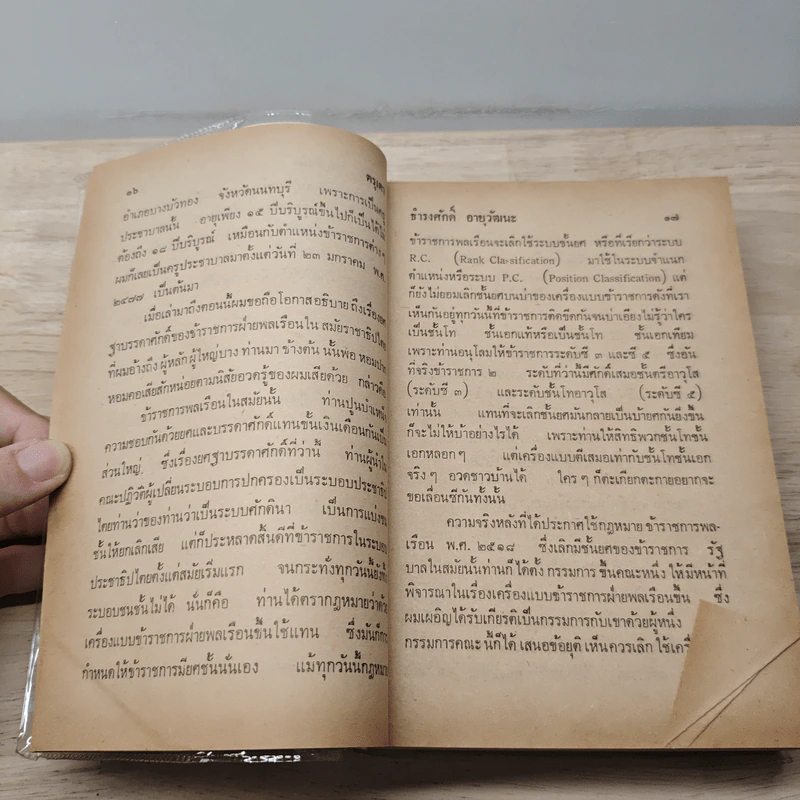 ๑๖
อำเภอบางบัวทอง จังหวัดนนทบุรี เพราะการเป็นครู
ประชาบาลนั้น อายุเพียง ๑๕ ปีบริบูรณ์ขึ้นไปก็เป็นได้ไม่
ต้องถึง ๑๘ ปีบริบูรณ์ เหมือนกับตำแหน่งข้าราชการต่าง ๆ
ผมก็เลยเป็นครูประชาบาลมาตั้งแต่วันที่ ๒๓ มกราคม พ.ศ.
๒๔๗๗ เป็นต้นมา
เมื่อเล่ามาถึงตอนนี้ผมขอถือโอกาสอธิบายถึงเรื่อง
ฐาบรรดาศักดิ์ของข้าราชการฝ่ายพลเรือนใน สมัยราชาธิปไตย
ที่ผมอ้างถึง ผู้หลัก ผู้ใหญ่บาง ท่านมา ข้างต้น นั้นพ่อ หอมปาก
หอมคอเสียสักหน่อยตามนิสัยอวดรู้ของผมเสียด้วย กล่าวคือ
ข้าราชการพลเรือนในสมัยนั้น ท่านปูนบำเหน็จ
ความชอบกันด้วยยศและบรรดาศักดิ์แทนขั้นเงินเดือนกันเป็น
ส่วนใหญ่ ซึ่งเรื่องยศฐาบรรดาศักดิ์ที่ว่านี้ ท่านผู้นำใน
คณะปฏิวัติผู้เปลี่ยนระบอบการปกครองเป็นระบอบประชาธิป
ไตยท่านว่าของท่านว่าเป็นระบบศักดินา เป็นการแบ่งชน
ชั้นให้ยกเลิกเสีย แต่ก็ประหลาดสิ้นดีที่ข้าราชการในระบอบ
ประชาธิปไตยตั้งแต่สมัยเริ่มแรก จนกระทั่งทุกวันนี้ยังทิ้ง
ระบอบชนชั้นไม่ได้ นั่นก็คือ ท่านได้ตรากฎหมายว่าด้วย
เครื่องแบบข้าราชการฝ่ายพลเรือนขึ้นใช้แทน ซึ่งมันก็การ
กำหนดให้ข้าราชการมียศชั้นนั่นเอง แม้ทุกวันนี้กฎหมาย
ธำรงศักดิ์ อายุวัฒนะ ๑๗
ข้าราชการพลเรือนจะเลิกใช้ระบบชั้นยศ หรือที่เรียกว่าระบบ
R.C. (Rank Classification) มาใช้ในระบบจำแนก
ตำแหน่งหรือระบบ P.C. (Position Classification) แต่
ก็ยังไม่ยอมเลิกชั้นยศบนบ่าของเครื่องแบบข้าราชการดังที่เรา
เห็นกันอยู่ทุกวันนี้ที่ข้าราชการติดขีดกันจนบ่าเอียงไม่รู้ว่าใคร
เป็นชั้นโท ชั้นเอกแท้หรือเป็นชั้นโท ชั้นเอกเทียม
เพราะท่านอนุโลมให้ข้าราชการระดับซี ๓ และซี ๕ ซึ่งอัน
ที่จริงข้าราชการ ๒ ระดับที่ว่านี้มีศักดิ์เสมอชั้นตรีอาวุโส
(ระดับซี ๓) และระดับชั้นโทอาวุโส (ระดับซี ๕)
เท่านั้น แทนที่จะเลิกชั้นยศมันกลายเป็นบ้ายศกันยิ่งขึ้น
ก็จะไม่ให้บ้าอย่างไรได้ เพราะท่านให้สิทธิพวกชั้นโทชั้น
เอกหลอก ๆ แต่เครื่องแบบดีเสมอเท่ากับชั้นโทชั้นเอก
จริงๆ อวดชาวบ้านได้ ใคร ๆ ก็ตะเกียกตะกายอยากจะ
ขอเลื่อนซีกันทั้งนั้น
ความจริงหลังที่ได้ประกาศใช้กฎหมาย ข้าราชการพล-
เรือน พ.ศ. ๒๕๑๘ ซึ่งเลิกมีชั้นยศของข้าราชการ รัฐ
บาลในสมัยนั้นท่านก็ได้ตั้ง กรรมการ ขึ้นคณะหนึ่ง ให้มีหน้าที่
พิจารณาในเรื่องเครื่องแบบข้าราชการฝ่ายพลเรือนขึ้น ซึ่ง
ผมเผอิญได้รับเกียรติเป็นกรรมการกับเขาด้วยผู้หนึ่ง
กรรมการคณะ นี้ก็ได้ เสนอข้อยุติ เห็นควรเลิก ใช้